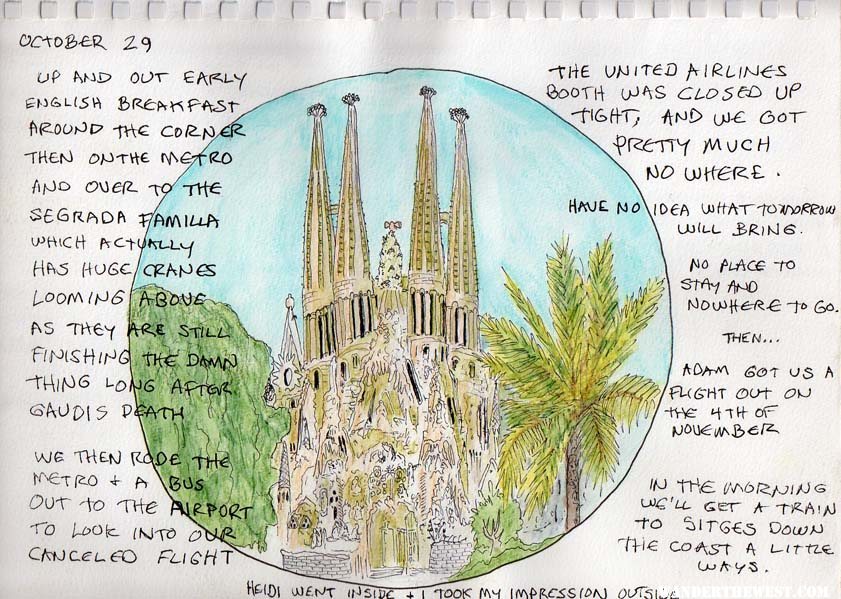 OCTOBER 29
UP AND OUT EARLY
ENGLISH BREAKFAST
AROUND THE CORNER
THEN ON THE METRO
AND OVER TO THE
SEGRADA FAMILLA
WHICH ACTUALLY
HAS HUGE CRANES
LOOMING ABOVE
AS THEY ARE STILL
FINISHING THE DAMN
THING LONG AFTER
GAUDIS DEATH
WE THEN RODE THE
METRO + A BUS
OUT TO THE AIRPORT
TO LOOK INTO OUR
CANCELED FLIGHT
THE UNITED AIRLINES
BOOTH WAS CLOSED UP
TIGHT, AND WE GOT
PRETTY MUCH
NO WHERE.
HAVE NO IDEA WHAT TOMORROW
WILL BRING.
NO PLACE TO
STAY AND
NOWHERE TO GO.
THEN...
ADAM GOT US A
FLIGHT OUT ON
THE 4TH OF
NOVEMBER
IN THE MORNING
WE'LL GET A TRAIN
TO SITGES DOWN
THE COAST A LITTLE
WAYS.
HEIDI WENT INSIDE + I TOOK MY IMPRESSION OUTSIDE
WANDERTHEWEST.COM